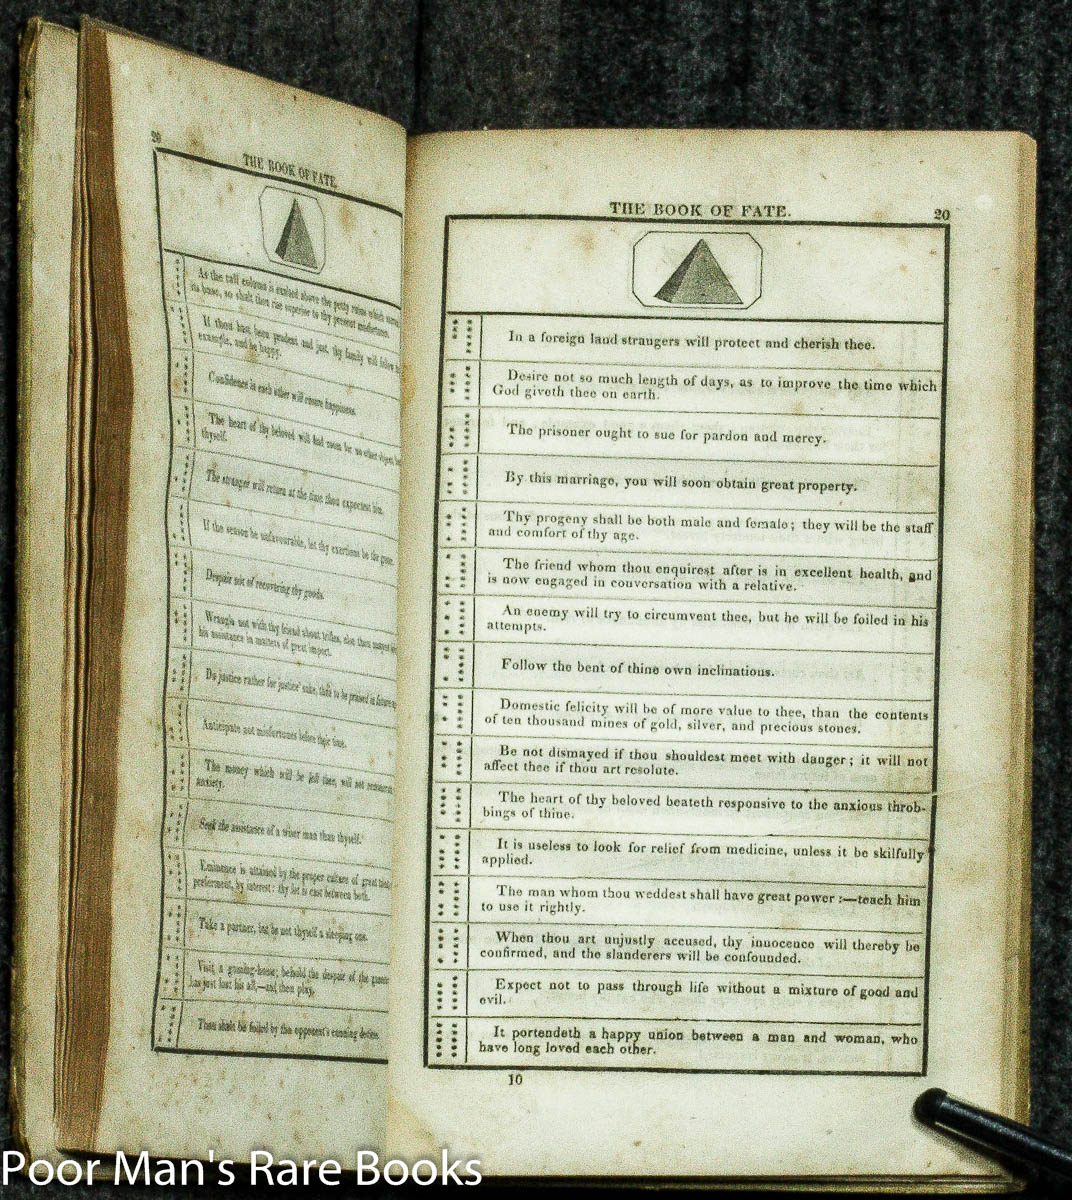 20
THE BOOK OF FATE.
As the tall column is exalted above the petty ruins which
its base, so shalt thou rise superior to thy present misfortunes.
If thou hast been prudent and just, thy family will follow
example, and be happy.
Confidence in each other will ensure happiness.
The heart of thy beloved will find room for no other object
thyself.
The stranger will return at the time thou expectest him.
If the season be unfavourable, let thy exertions be the
Despair not of recovering thy goods.
Wrangle not with thy friend about trifles,
his assistance in matters of great import.
Do justice rather for justice' sake, than to be praised in
Anticipate not misfortunes before their time.
The money which will be left thee, will not
anxiety.
Seek the assistance of a wiser man than thyself.
Eminence is attained by the proper culture of great
preferment, by interest: thy lot is cast between both.
Take a partner, but be not thyself a sleeping one.
Visit a gaming-house; behold the despair of the
has just lost his all,—and then play.
Thou shalt be foiled by the opponent's cunning
THE BOOK OF FATE.
20
In a foreign land strangers will protect and cherish thee.
Desire not so much length of days, as to improve the time which
God giveth thee on earth.
The prisoner ought to sue for pardon and mercy.
By this marriage, you will soon obtain great property.
Thy progeny shall be both male and female; they will be the staff
and comfort of thy age.
The friend whom thou enquirest after is in excellent health, and
is now engaged in conversation with a relative.
An enemy will try to circumvent thee, but he will be foiled in his
attempts.
Follow the bent of thine own inclinations.
Domestic felicity will be of more value to thee, than the contents
of ten thousand mines of gold, silver, and precious stones.
Be not dismayed if thou shouldest meet with danger; it will not
affect thee if thou art resolute.
The heart of thy beloved beateth responsive to the anxious throb-
bings of thine.
It is useless to look for relief from medicine, unless it be skilfully
applied.
The man whom thou weddest shall have great power:—teach him
to use it rightly.
When thou art unjustly accused, thy innocence will thereby be
confirmed, and the slanderers will be confounded.
Expect not to pass through life without a mixture of good and
evil.
It portendeth a happy union between a man and woman, who
have long loved each other.
10
Poor Man's Rare Books